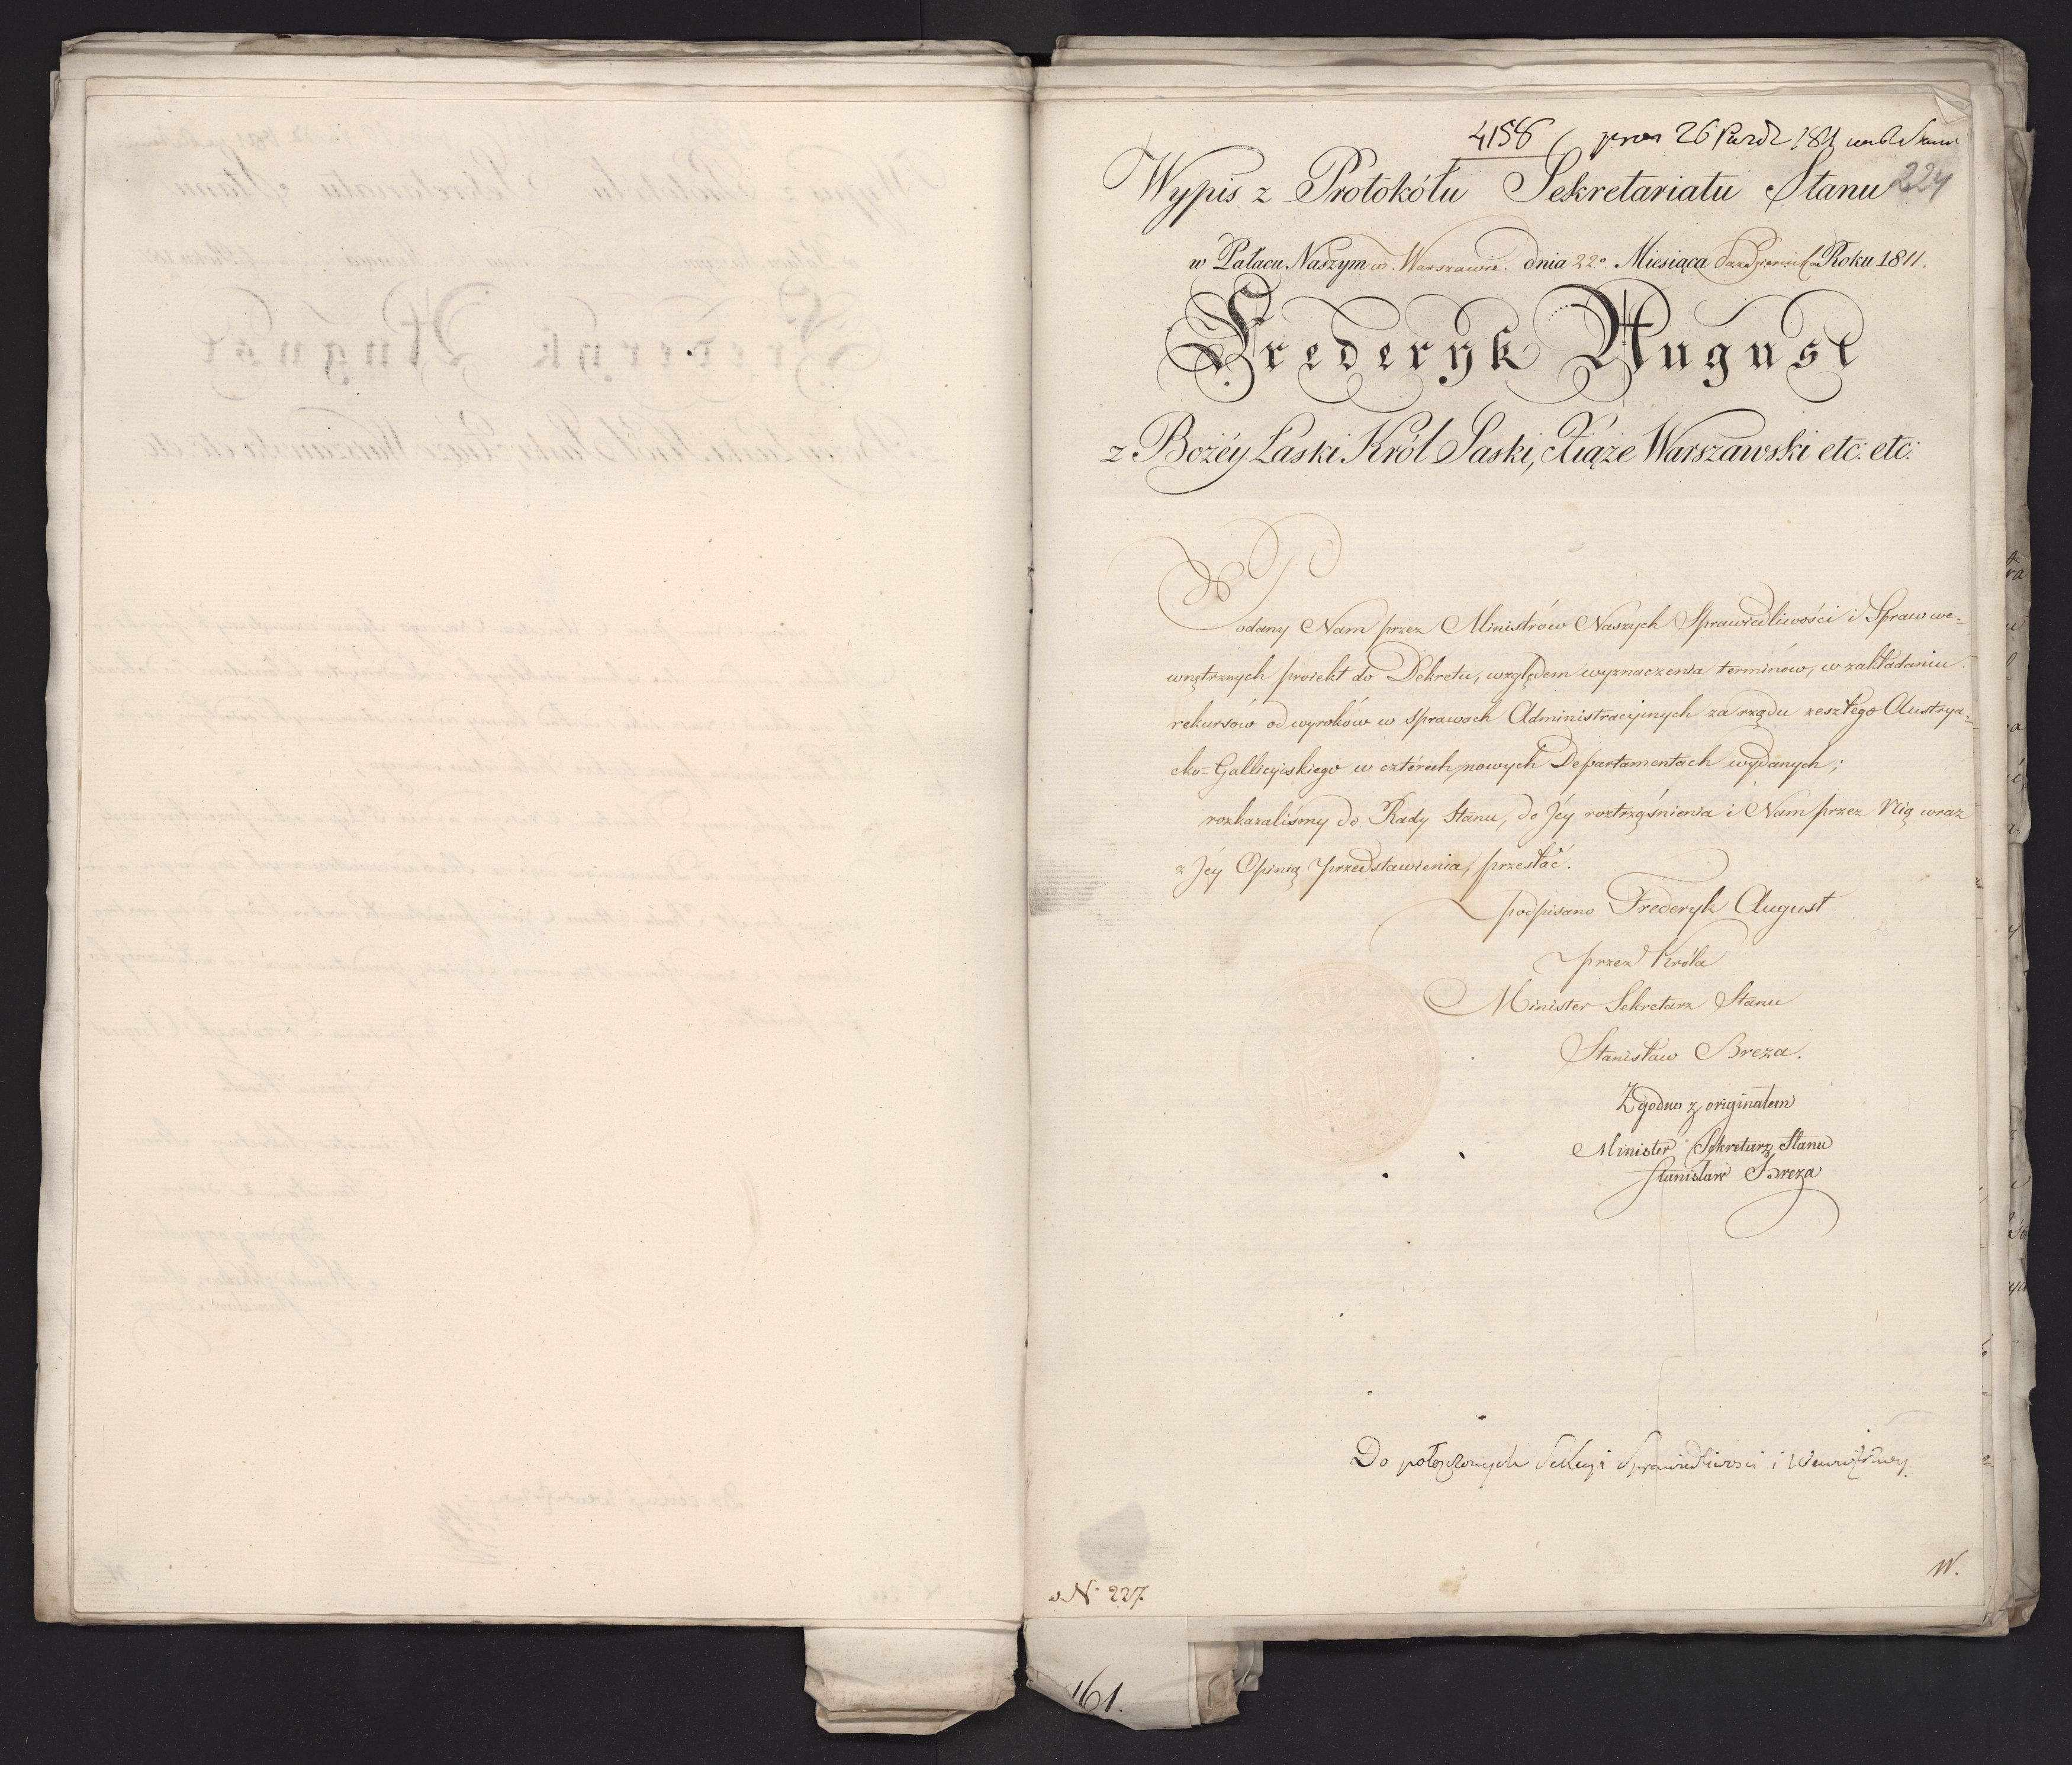 4158 pres 26 Pazdz 1811
Wypis z Protokółu Sekretariatu Stanu 224
w Pałacu Naszym w Warszawie dnia 22º Miesiąca Października Roku 1811.
Frederyk August
z Bożéy Łaski Król Saski, Xiąże Warszawski etc: etc:
Podany Nam przez Ministrów Naszych Sprawiedliwości i Spraw we=
wnętrznych proiekt do Dekretu, względem wyznaczenia terminów, w zakładaniu
rekursów od wyroków w sprawach Administracyinych za rządu zeszłego Austrya=
cko=Gallicyiskiego w cztérech nowych Departamentach wydanych;
rozkazaliśmy do Rady Stanu, do Jéy roztrząśnienia i Nam przez Nią wraz
z Jéy Opinią przedstawienia, przesłać.
podpisano Frederyk August
przez Króla
Minister Sekretarz Stanu
Stanisław Breza.
Zgodno z originałem
Minister Sekretarz Stanu
Stanisław Breza
Do połączonych Sekcyi Sprawiedliwosci i Wewnętrzney.
W.
N. 227.
161.